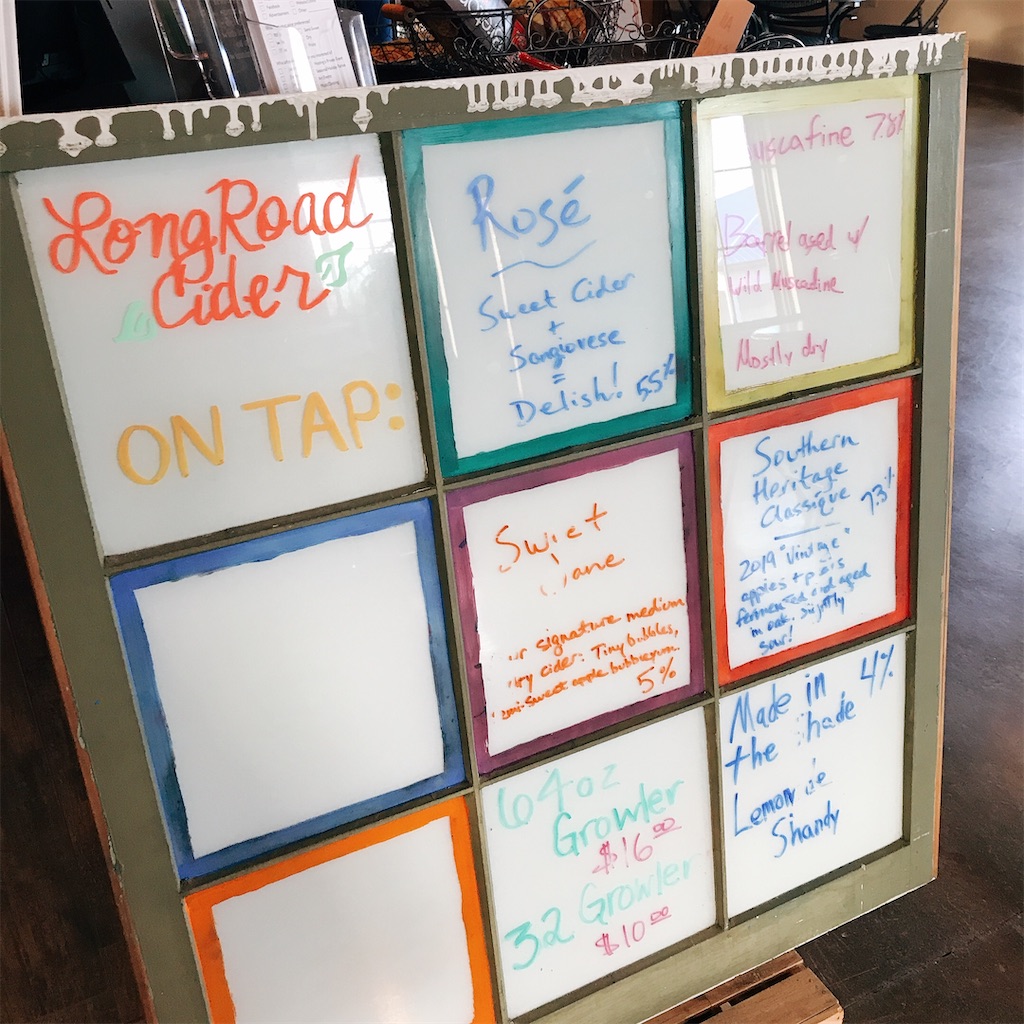 LongRoad
Cider
ON TAP:
Rosé
Sweet Cider
+
Sangiovese
=
Delish! 5.5%
uscafine 7.8%
Barrel aged w/
Wild Muscadine
Mostly dry
Sweet
ane
ur signature medium
ry cider. Tiny bubbles,
emi-sweet apple bubblegum.
5%
Southern
Heritage
Classique 7.3%
2019 "Vintage"
apples + pears
fermented and aged
in oak. slightly
sour!
64oz
Growler
$16.00
32 Growler
$10.00
Made in 4%
the hade
Lemon de
Shandy